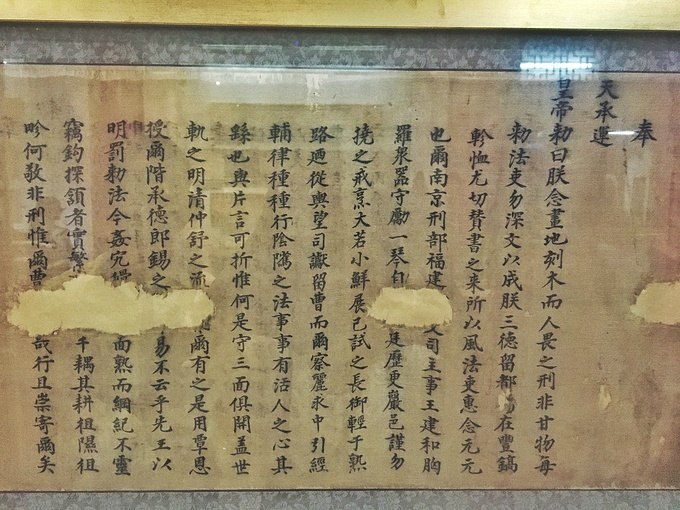 奉
天承運
皇帝勑曰朕念畫地刻木而人畏之刑非甘物每
勑法吏勿深文以成朕三德留都 在豐鎬
軫恤尤切賛書之來所以風法吏惠念元元
也爾南京刑部福建 司主事王建和胸
羅衆器守勵一琴 是歷更巖邑謹勿
撓之戒烹大若小鮮展已試之長御輕于熟
路廼從輿望司讞留曹而爾察麗求中引經
輔律種種行陰隲之法事事有活人之心其
繇也與片言可折惟何是守三而俱開蓋世
軌之明清仲舒之 爾有之是用覃恩
授爾階承德郎錫之 易不云乎先王以
明罰勑法今姦宄 面熟而綱紀不靈
竊鉤探頷者實繁 千耦其耕徂隰徂
畛何敬非刑惟爾曹 哉行且崇寄爾矣